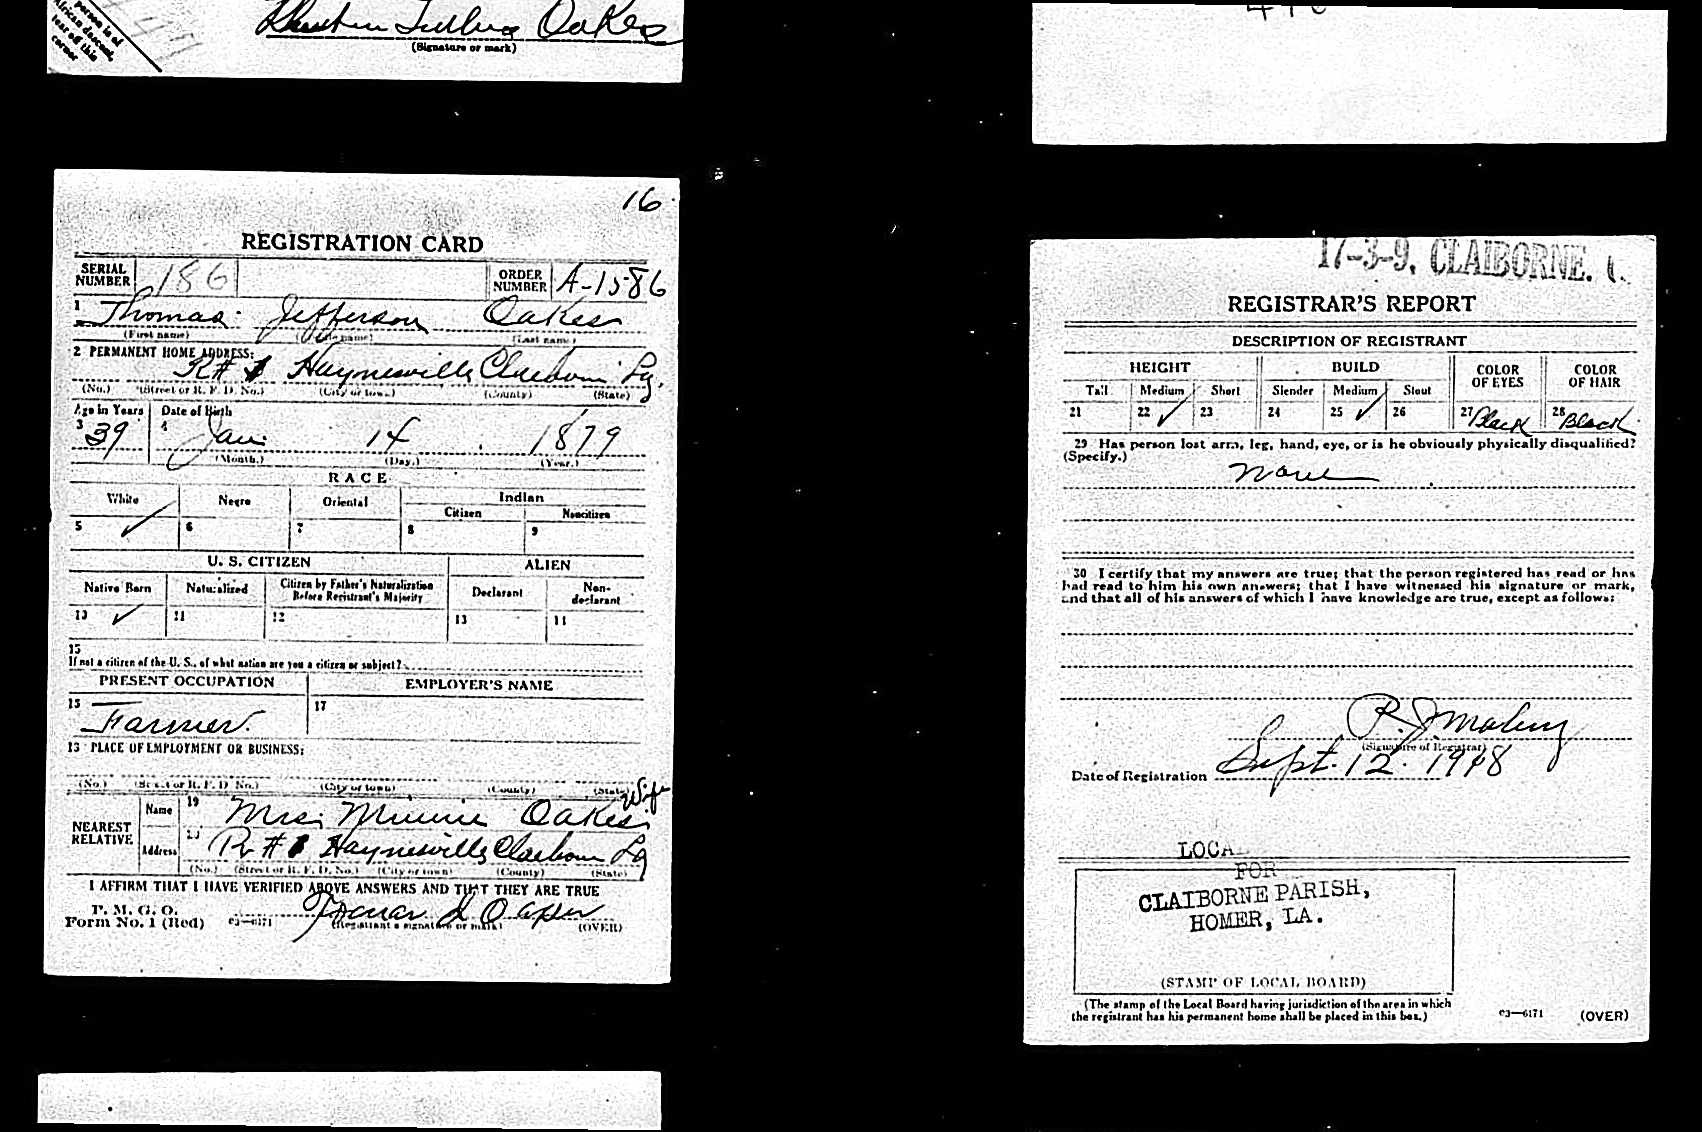 person is of
African descent,
tear off this
corner
Oakes
(Signature or mark)
16
REGISTRATION CARD
SERIAL NUMBER 186 ORDER NUMBER A-1586
1 Thomas Jefferson Oakes
(First name) (Last name)
2 PERMANENT HOME ADDRESS:
R# 1 Haynesville Claiborne La.
(No.) (Street or R. F. D. No.) (City or town) (County) (State)
Age in Years Date of Birth
3 39 4 Jan. 14 1879
(Month.) (Day.) (Year.)
RACE
White Negro Oriental Indian
Citizen Noncitizen
5 ✓ 6 7 8 9
U. S. CITIZEN ALIEN
Native Born Naturalized Citizen by Father's Naturalization Before Registrant's Majority Declarant Non-declarant
10 ✓ 11 12 13 14
15
If not a citizen of the U. S., of what nation are you a citizen or subject?
PRESENT OCCUPATION EMPLOYER'S NAME
16 Farmer. 17
18 PLACE OF EMPLOYMENT OR BUSINESS:
(No.) (Street or R. F. D. No.) (City or town) (County) (State)
Wife
NEAREST RELATIVE Name 19 Mrs. Minnie Oakes
Address 20 R # 1 Haynesville Claiborne La
(No.) (Street or R. F. D. No.) (City or town) (County) (State)
I AFFIRM THAT I HAVE VERIFIED ABOVE ANSWERS AND THAT THEY ARE TRUE
P. M. G. O.
Form No. 1 (Red) 03—6171 (Registrant's signature or mark) (OVER)
17-3-9. CLAIBORNE.
REGISTRAR'S REPORT
DESCRIPTION OF REGISTRANT
HEIGHT BUILD COLOR OF EYES COLOR OF HAIR
Tall Medium Short Slender Medium Stout
21 22 ✓ 23 24 25 ✓ 26 27 Black 28 Black
29 Has person lost arm, leg, hand, eye, or is he obviously physically disqualified?
(Specify.)
None
30 I certify that my answers are true; that the person registered has read or has
had read to him his own answers; that I have witnessed his signature or mark,
and that all of his answers of which I have knowledge are true, except as follows:
(Signature of Registrar)
Date of Registration Sept. 12. 1918
LOCA
FOR
CLAIBORNE PARISH,
HOMER, LA.
(STAMP OF LOCAL BOARD)
(The stamp of the Local Board having jurisdiction of the area in which
the registrant has his permanent home shall be placed in this box.)
03—6171 (OVER)